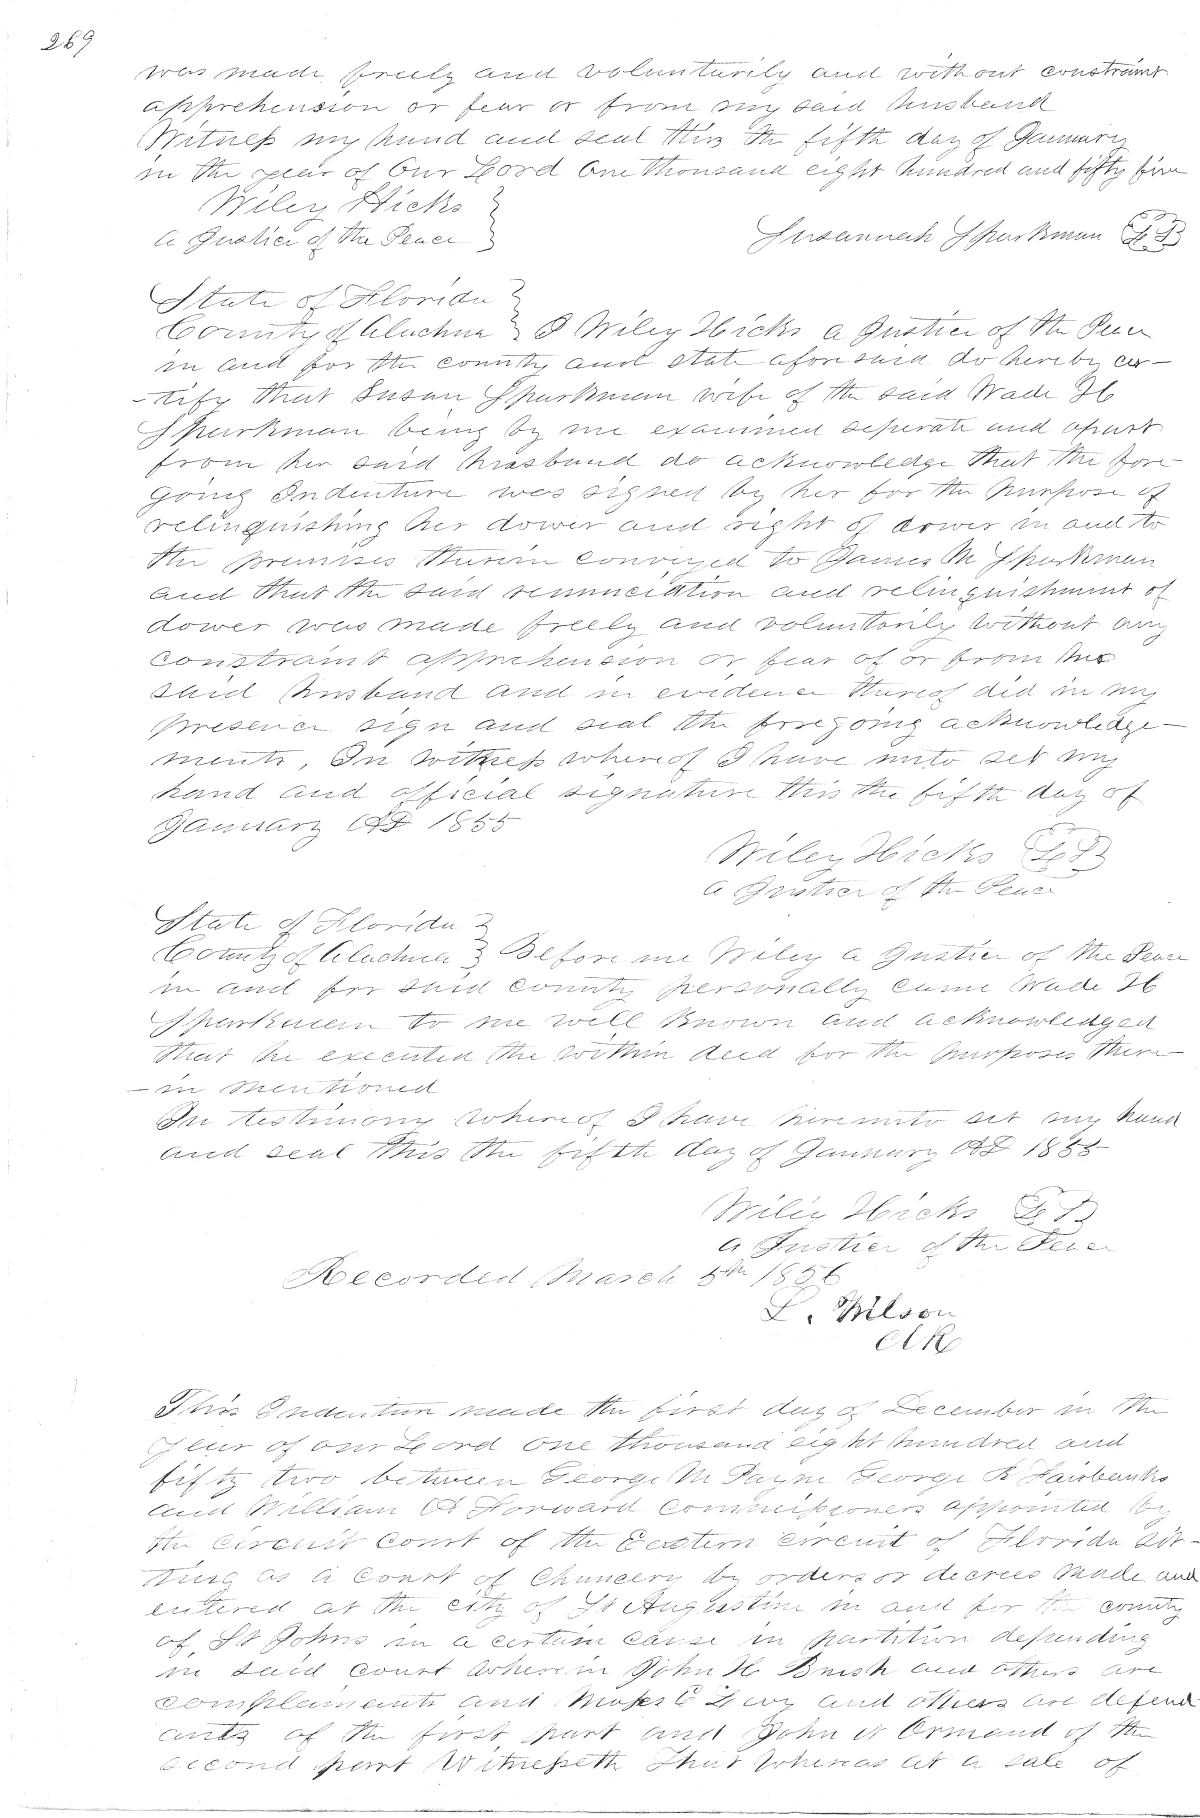 269
was made freely and voluntarily and without constraint
apprehension or fear or from my said husband
Witness my hand and seal this the fifth day of January
in the year of Our Lord One thousand eight hundred and fifty five
Wiley Hicks
a Justice of the Peace
Susannah Sparkman LS
State of Florida
County of Alachua I Wiley Hicks a Justice of the Peace
in and for the county and state aforesaid do hereby cer-
-tify that Susan Sparkman wife of the said Wade H
Sparkman being by me examined seperate and apart
from her said husband do acknowledge that the fore-
going Indenture was signed by her for the purpose of
relinquishing her dower and right of dower in and to
the premises therein conveyed to James M Sparkman
and that the said renunciation and relinquishment of
dower was made freely and voluntarily without any
constraint apprehension or fear of or from her
said husband and in evidence thereof did in my
presence sign and seal the foregoing acknowledge-
ments, In witness whereof I have unto set my
hand and official signature this the fifth day of
January AD 1855
Wiley Hicks LS
a Justice of the Peace
State of Florida
County of Alachua Before me Wiley a Justice of the Peace
in and for said county personally came Wade H
Sparkman to me well known and acknowledged
that he executed the within deed for the purposes there-
-in mentioned
In testimony whereof I have hereunto set my hand
and seal this the fifth day of January AD 1855
Wiley Hicks LS
a Justice of the Peace
Recorded March 5th 1856
L. Wilson
Clk
This Indenture made the first day of December in the
year of our Lord one thousand eight hundred and
fifty two between George M Payne George R Fairbanks
and William A Forward commissioners appointed by
the circuit court of the Eastern circuit of Florida sit-
ting as a court of Chancery by orders or decrees made and
entered at the city of St Augustine in and for the county
of St Johns in a certain cause in partition depending
in said court wherein John H Brush and others are
complainants and Moses E Levy and others are defend
ants of the first part and John N Ormand of the
second part Witnesseth That whereas at a sale of